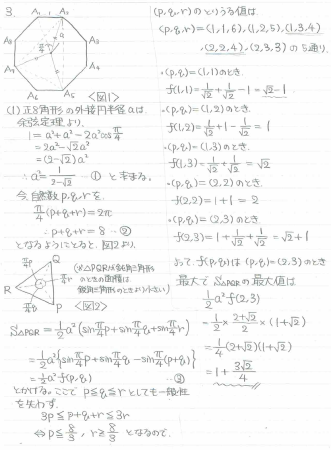 3.
A₁ A₂
A₈ A₃
A₇ A₄
A₆ A₅
<図1>
(1) 正8角形の外接円半径aは、
余弦定理より、
1 = a² + a² - 2a²cos π/4
= 2a² - √2a²
= (2-√2)a²
∴ a² = 1/(2-√2) …① と求まる。
今、自然数p,q,rを、
π/4(p+q+r) = 2π
∴ p+q+r = 8 …②
となるようにとると、図2より、
Q
R
P
<図2>
(※△PQRが鈍角三角形
のときの面積は
鋭角三角形のときより小さい)
S△PQR = 1/2 a²(sin π/4 p + sin π/4 q + sin π/4 r)
= 1/2 a²{sin π/4 p + sin π/4 q - sin π/4(p+q)}
= 1/2 a² f(p,q) …③
とかける。ここで p≦q≦r としても一般性
を失わず、
3p ≦ p+q+r ≦ 3r
⇔ p ≦ 8/3, r ≧ 8/3 となるので、
(p,q,r)のとりうる値は
(p,q,r) = (1,1,6), (1,2,5), (1,3,4)
(2,2,4), (2,3,3) の5通り。
・(p,q) = (1,1)のとき、
f(1,1) = 1/√2 + 1/√2 - 1 = √2-1
・(p,q) = (1,2)のとき、
f(1,2) = 1/√2 + 1 - 1/√2 = 1
・(p,q) = (1,3)のとき、
f(1,3) = 1/√2 + 1/√2 = √2
・(p,q) = (2,2)のとき、
f(2,2) = 1+1 = 2
・(p,q) = (2,3)のとき
f(2,3) = 1 + 1/√2 + 1/√2 = √2+1
よって、f(p,q)は (p,q) = (2,3)のとき
最大で S△PQRの最大値は
1/2 a² f(2,3)
= 1/2 × (2+√2)/2 × (1+√2)
= 1/4(2+√2)(1+√2)
= 1 + 3√2/4